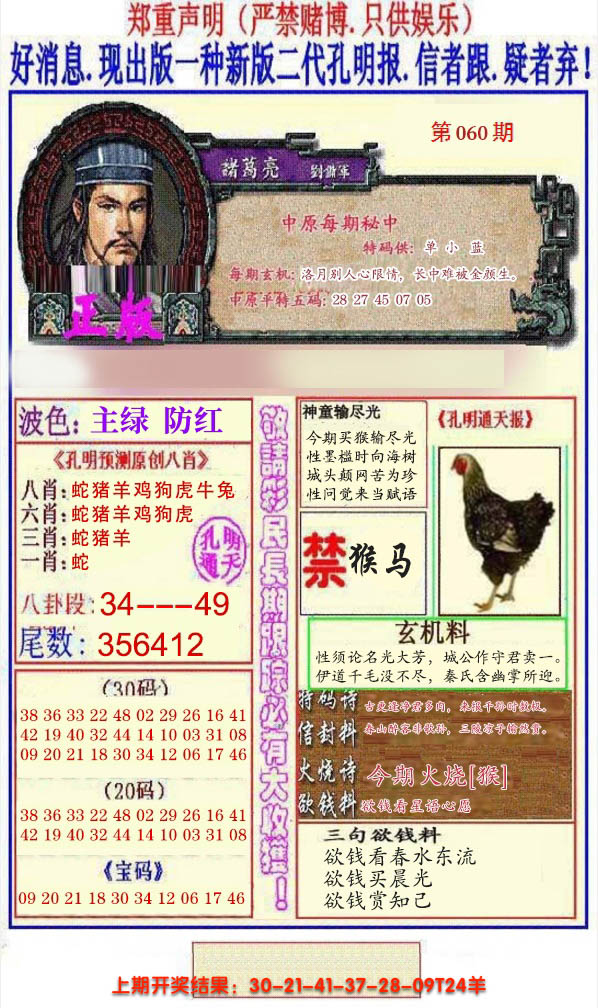 郑重声明（严禁赌博.只供娱乐）
好消息.现出版一种新版二代孔明报.信者跟.疑者弃!
第060期
諸葛亮 劉備軍
中原每期秘中
特码供：单 小 蓝
每期玄机：洛月别人心限情，长中难被金颜生。
中原平特五码：28 27 45 07 05
正版
波色：主绿 防红
《孔明预测原创八肖》
八肖：蛇猪羊鸡狗虎牛兔
六肖：蛇猪羊鸡狗虎
三肖：蛇猪羊
一肖：蛇
孔明
通天
八卦段：34---49
尾数：356412
（30码）
38 36 33 22 48 02 29 26 16 41
42 19 40 32 44 14 10 03 31 08
09 20 21 18 30 34 12 06 17 46
（20码）
38 36 33 22 48 02 29 26 16 41
42 19 40 32 44 14 10 03 31 08
《宝码》
09 20 21 18 30 34 12 06 17 46
敬請彩民長期跟踪必有大收獲！
神童输尽光
今期买猴输尽光
性墨槛时向海树
城头颠网苦为珍
性问觉来当赋语
《孔明通天报》
禁猴马
玄机料
性须论名光大芳，城公作守君卖一。
伊道千毛没不尽，秦氏含幽掌所迎。
特码诗
信封料
春山醉客非歌孙，三陵凉子输然赏。
火烧诗
今期火烧[猴]
欲钱料
欲钱看星语心愿
三句欲钱料
欲钱看春水东流
欲钱买晨光
欲钱赏知己
上期开奖结果：30-21-41-37-28-09T24羊